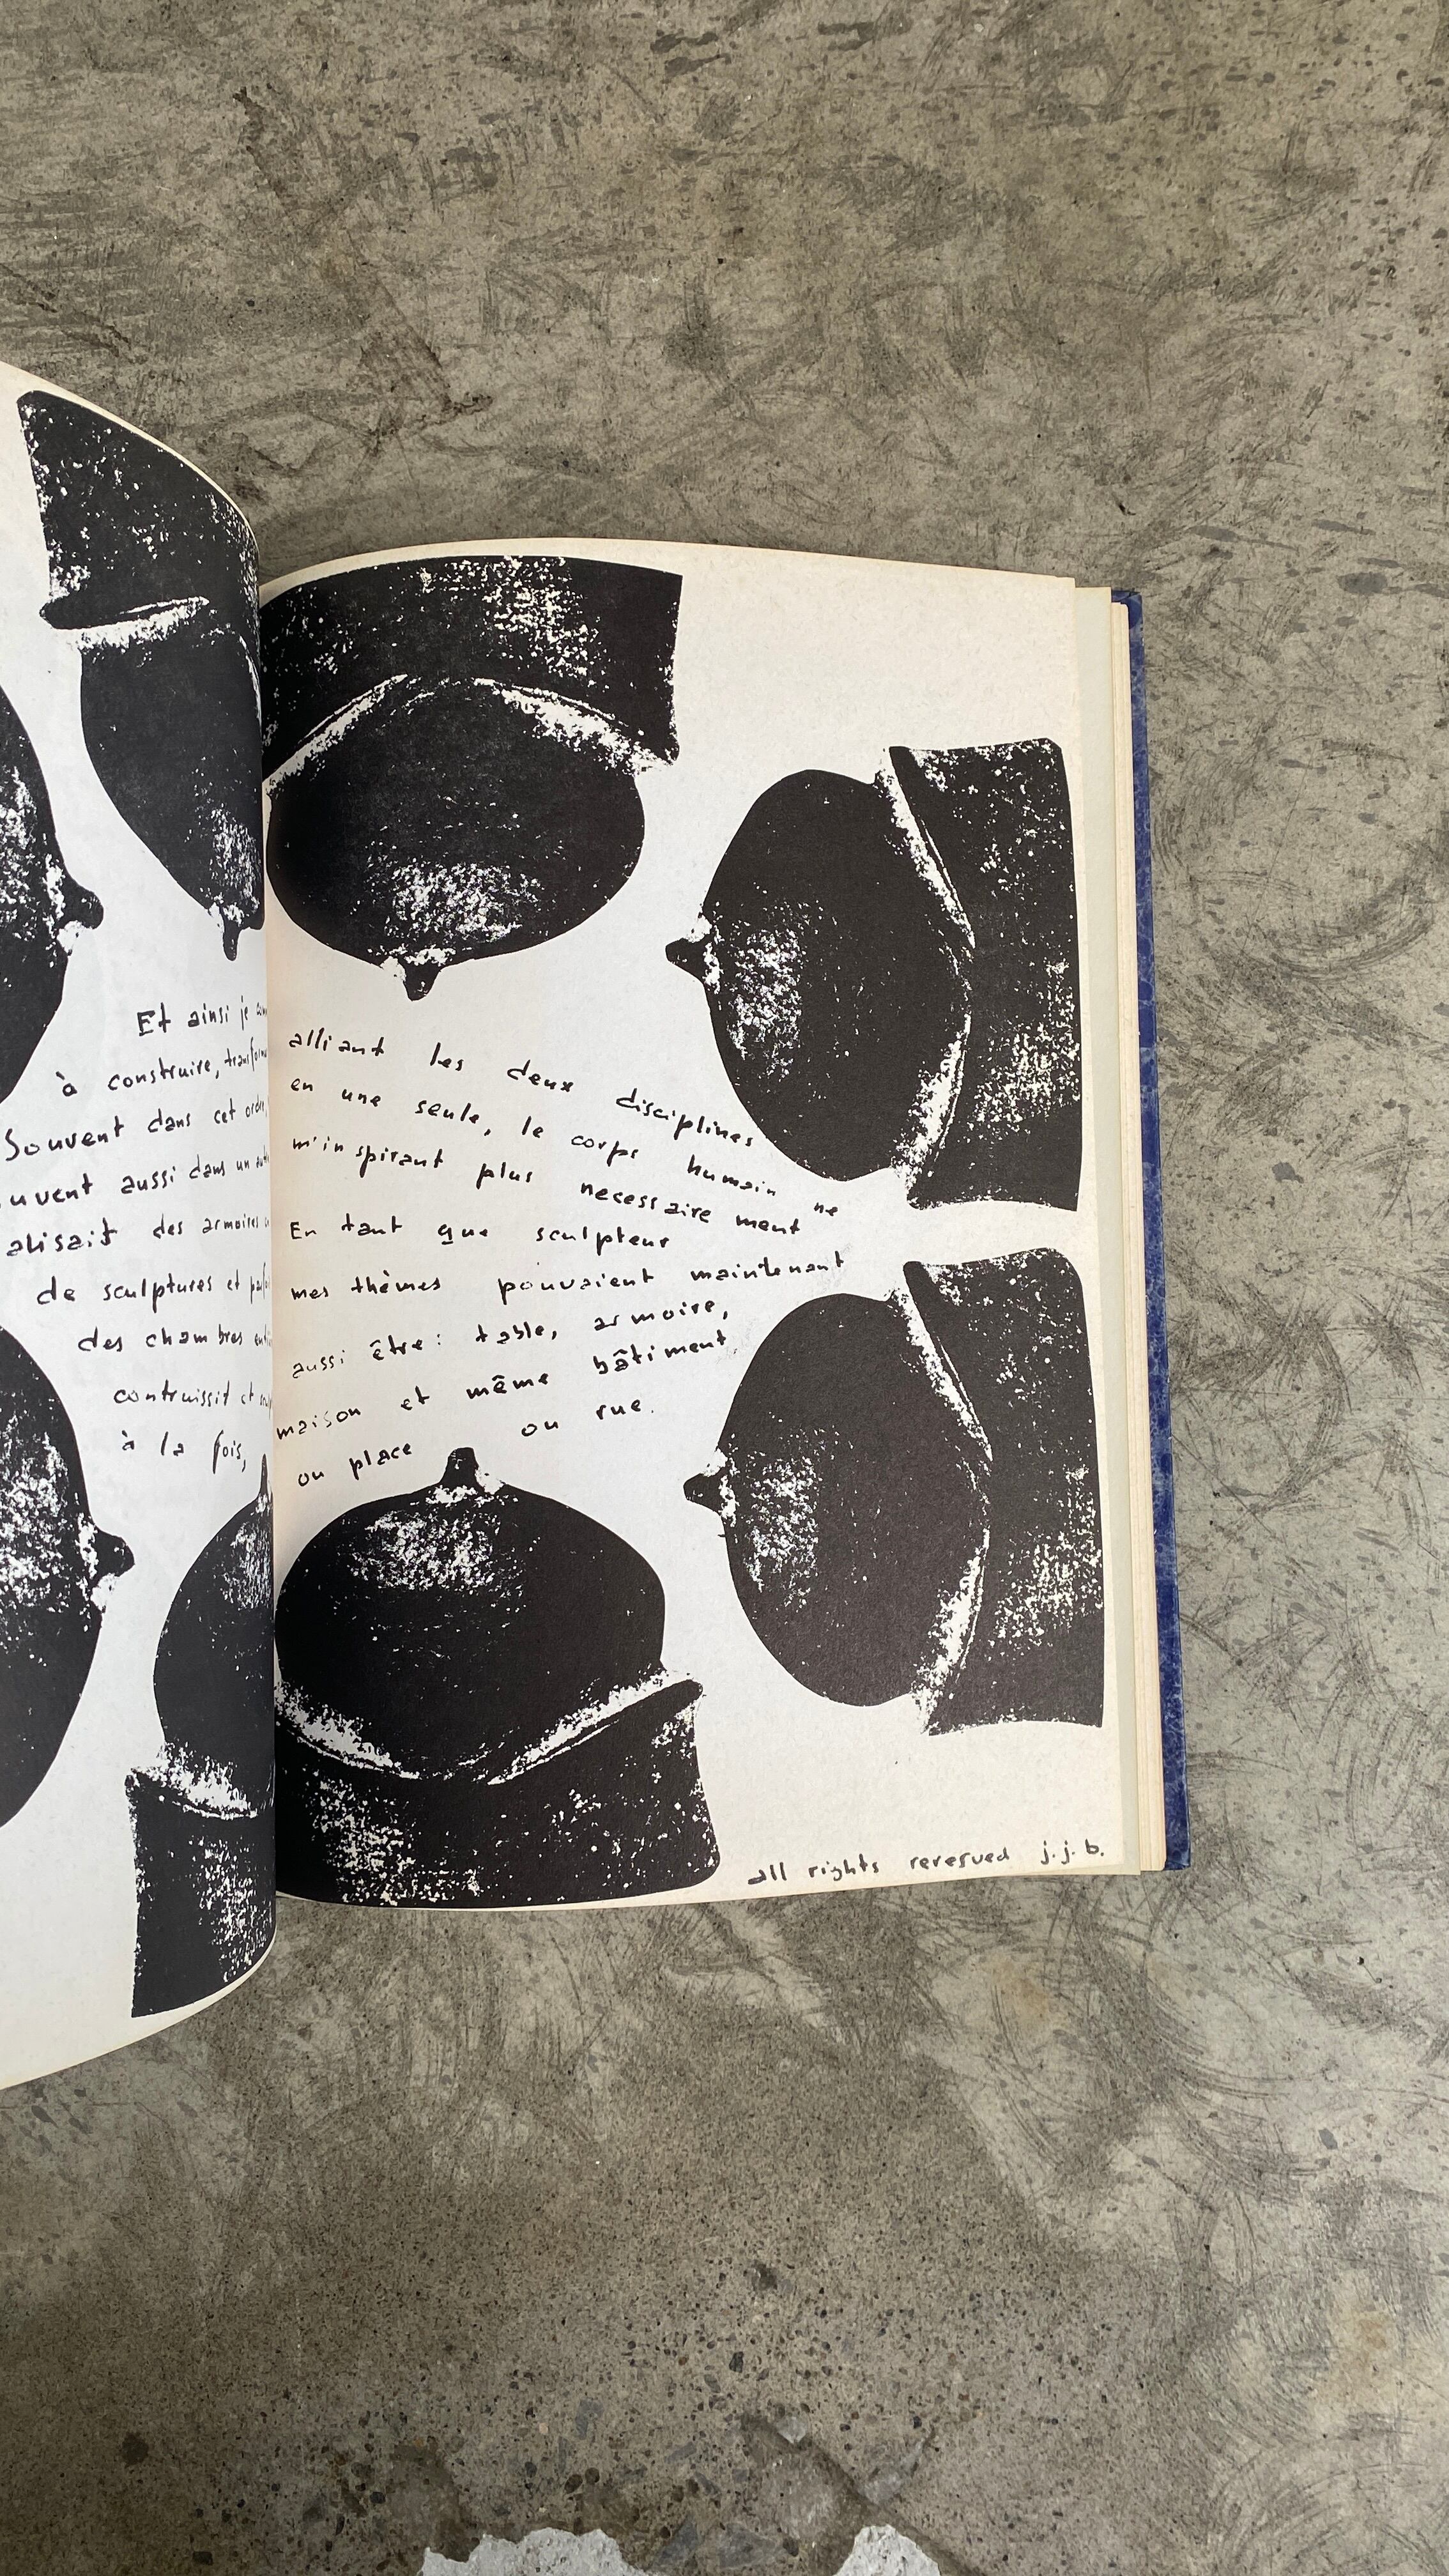 Et ainsi je
à construire,
Souvent dans cet ordre,
aussi dans un
des armoires
de sculptures et
des chambres
contruissit et
à la fois,
alliant les deux disciplines
en une seule, le corps humain ne
m'inspirant plus necessairement
En tant que sculpteur
mes thèmes pouvaient maintenant
aussi être: table, armoire,
maison et même bâtiment
ou place ou rue.
all rights reresued j.j.b.